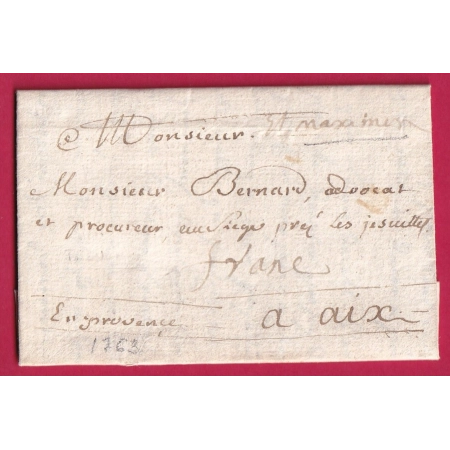 Monsieur St maximin
Monsieur Bernard, advocat
et procureur, au siege prez les jesuittes
franc
En provence a aix
1763